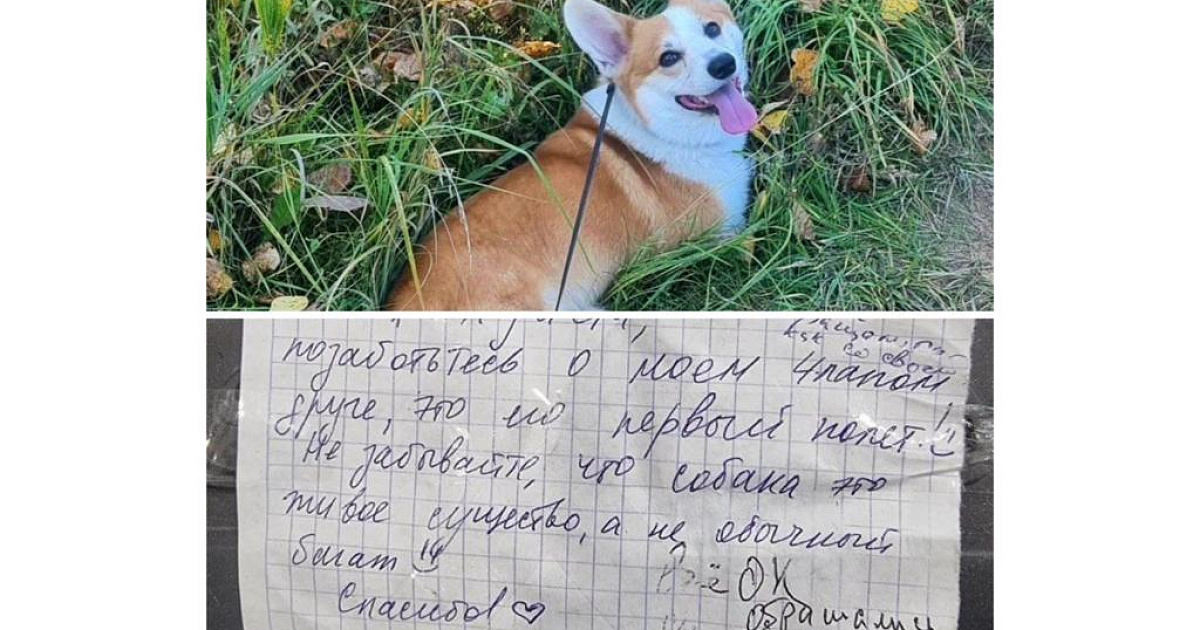 позаботьтесь о моем 4лапом
как со своей
друге, это его первый полет!!
Не забывайте, что собака это
живое существо, а не обычный
багаж
Спасибо! ♡
Всё ОК
обращались